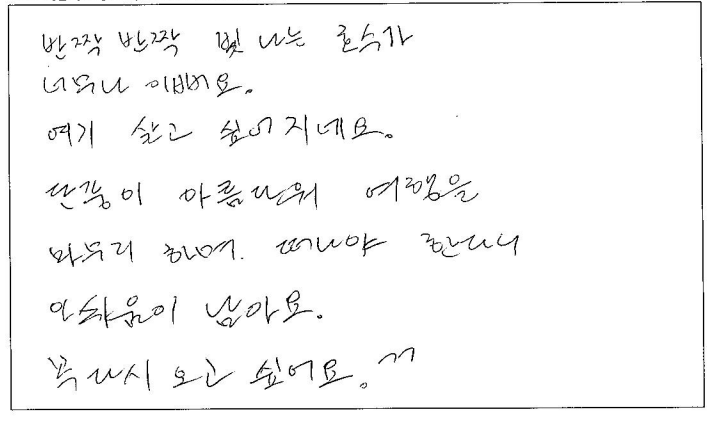 반짝 반짝 빛 나는 호수가
너무나 이뻐요.
여기 살고 싶어 지네요.
단풍이 아름다워 여행을
마무리 하며. 떠나야 한다니
아쉬움이 남아요.
꼭 다시 오고 싶어요. ^^